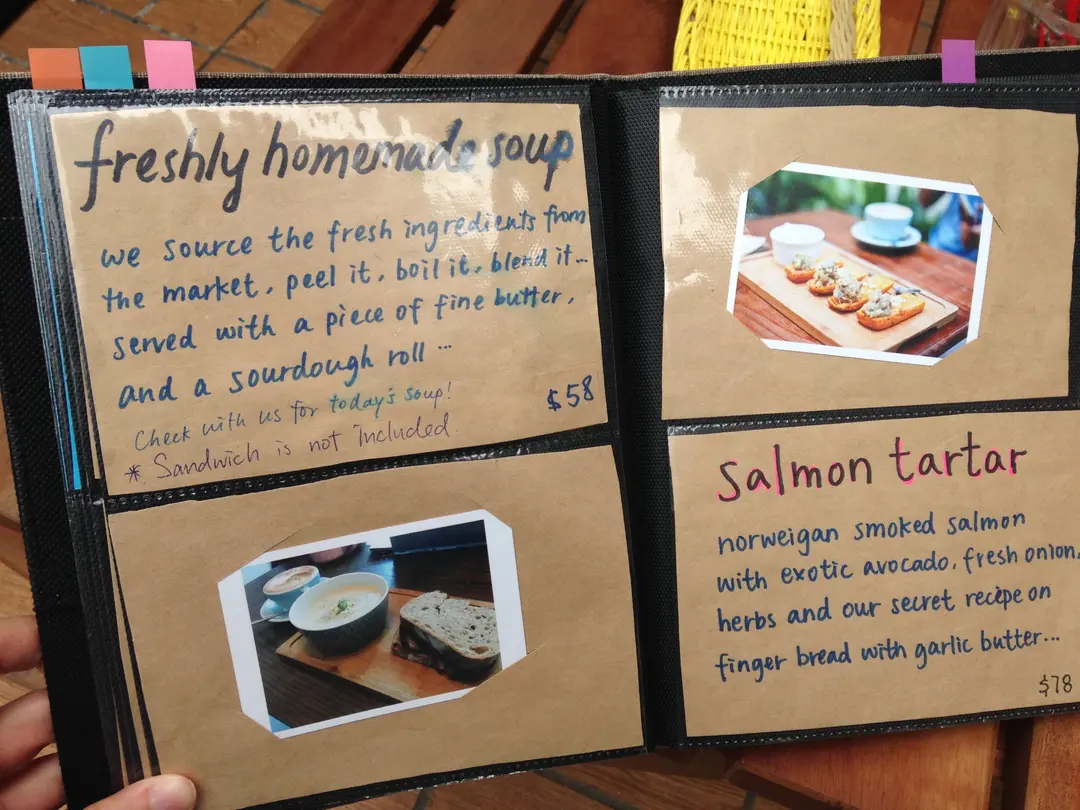 freshly homemade soup
we source the fresh ingredients from
the market, peel it, boil it, blend it...
served with a piece of fine butter,
and a sourdough roll ...
Check with us for today's soup!
* Sandwich is not included.
$58
salmon tartar
norweigan smoked salmon
with exotic avocado, fresh onion,
herbs and our secret recipe on
finger bread with garlic butter...
$78